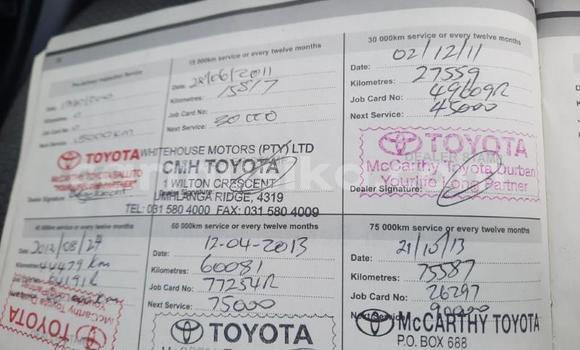 Pre-delivery Inspection Service
Date:
Kilometres: 0
Job Card No: 0
Next Service: 15000km
TOYOTA
15 000km service or every twelve months
Date: 28/06/2011
Kilometres: 15817
Job Card No:
Next Service: 30000
WHITEHOUSE MOTORS (PTY) LTD
CMH TOYOTA
1 WILTON CRESCENT
UMHLANGA RIDGE, 4319
TEL: 031 580 4000 FAX: 031 580 4009
30 000km service or every twelve months
02/12/11
Date:
Kilometres: 27559
Job Card No: 49609R
Next Service: 45000
TOYOTA
DEALER STAMP
McCarthy Toyota Durban
Your life Long Partner
Dealer Signature:
45 000km service or every twelve months
2012/08/27
44479 km
TOYOTA
60 000km service or every twelve months
Date: 12-04-2013
Kilometres: 60081
Job Card No: 77254R
Next Service: 75000
TOYOTA
75 000km service or every twelve months
Date: 21/10/13
Kilometres: 75587
Job Card No: 26297
Next Service: 90000
McCARTHY TOYOTA
P.O. BOX 688